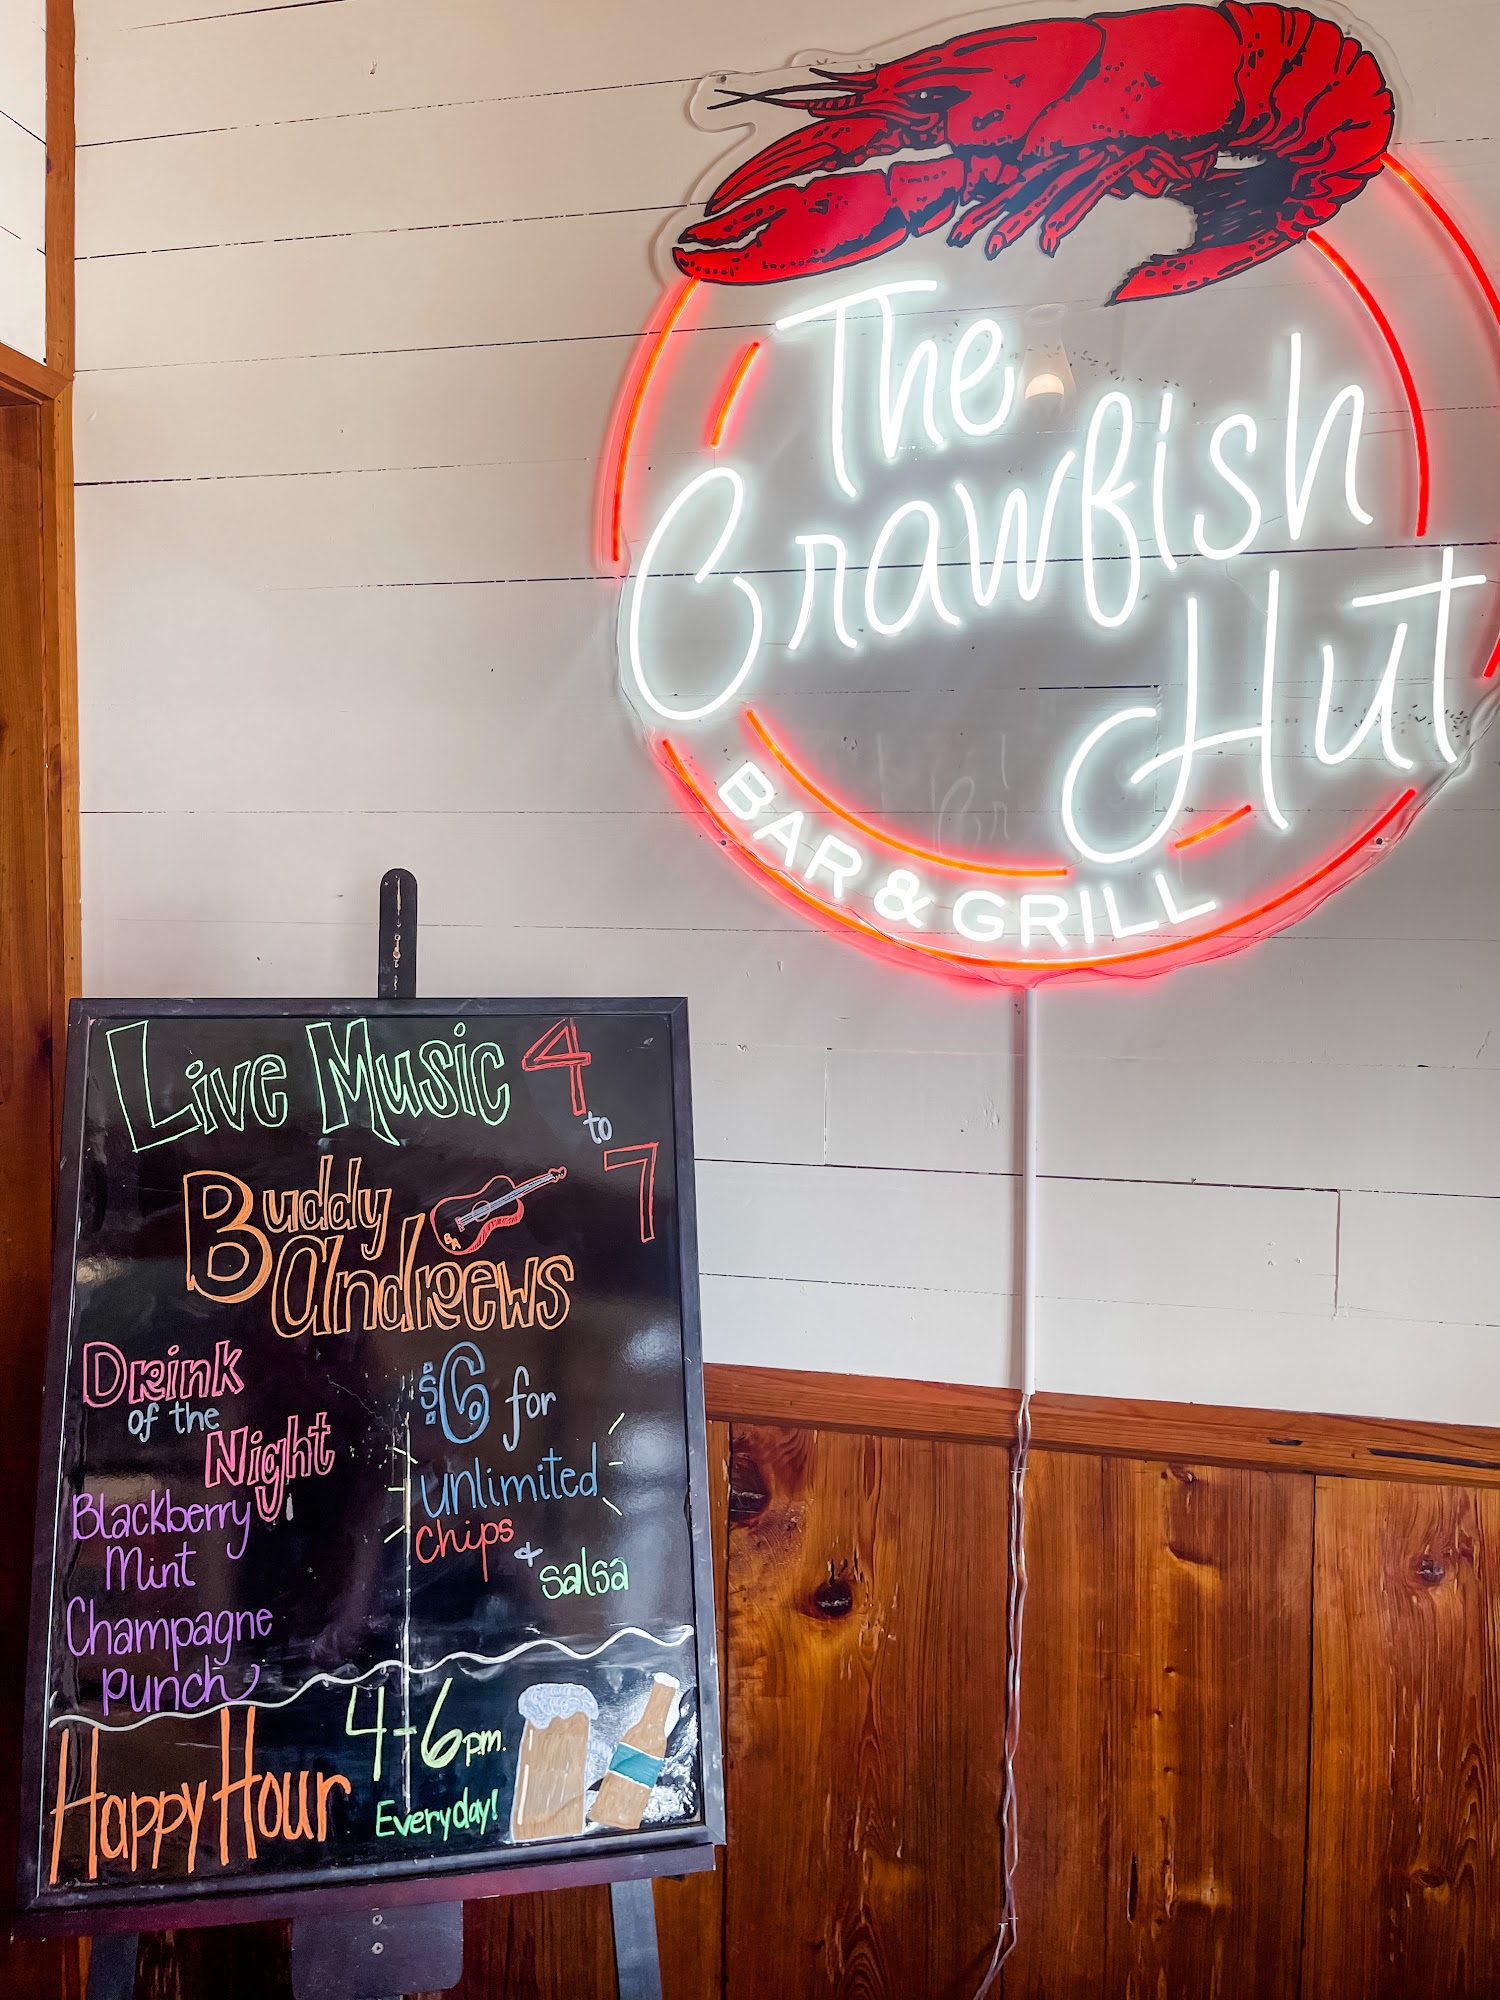 The
Crawfish
Hut
BAR & GRILL
Live Music 4
to
7
Buddy
Andrews
BA
Drink
of the
Night
Blackberry
Mint
Champagne
Punch
$6 for
unlimited
chips
&
salsa
Happy Hour
4-6 p.m.
Everyday!